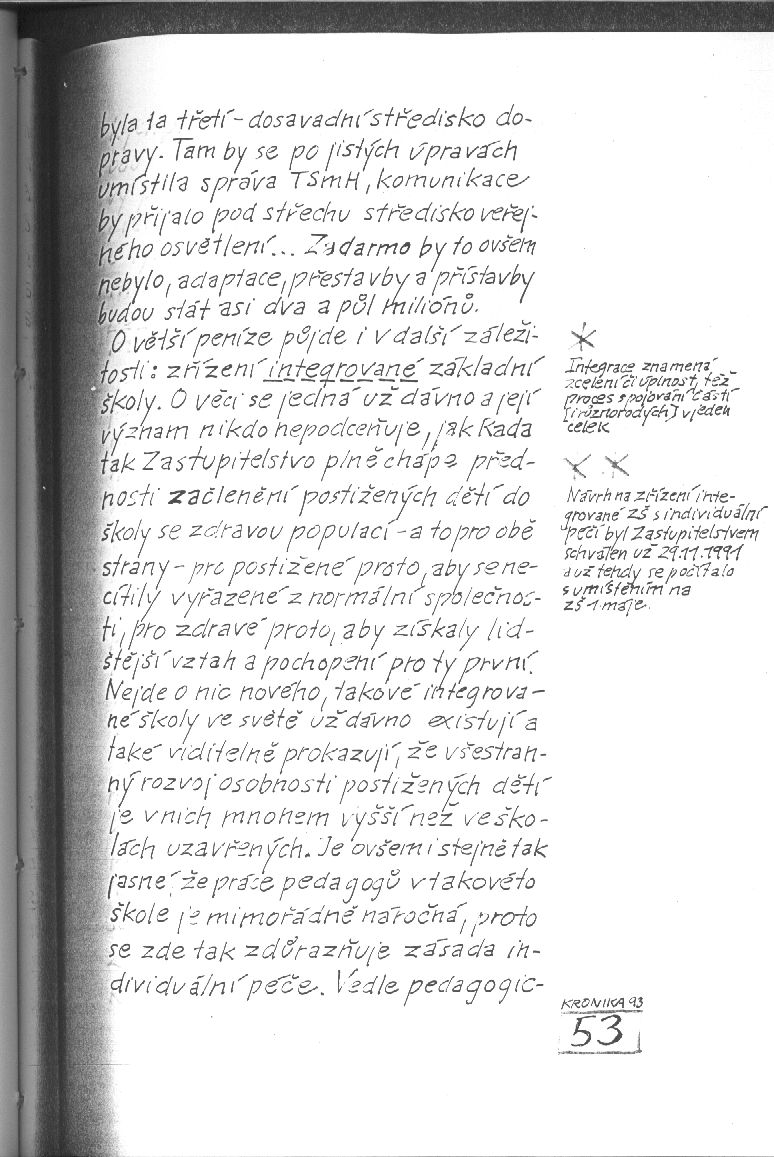 byla ta třetí - dosavadní středisko do-
pravy. Tam by se po jistých úpravách
umístila správa TSmH, komunikace
by přijalo pod střechu středisko veřej-
ného osvětlení... Zadarmo by to ovšem
nebylo, adaptace, přestavby a přístavby
budou stát asi dva a půl miliónů.
O větší peníze půjde i v další záleži-
tosti: zřízení integrované základní
školy. O věci se jedná už dávno a její
význam nikdo nepodceňuje, jak Rada
tak Zastupitelstvo plně chápe před-
nosti začlenění postižených dětí do
školy se zdravou populací - a to pro obě
strany - pro postižené proto, aby se ne-
cítily vyřazené z normální společnos-
ti, pro zdravé proto, aby získaly lid-
štější vztah a pochopení pro ty první.
Nejde o nic nového, takové integrova-
né školy ve světě už dávno existují a
také viditelně prokazují, že všestran-
ný rozvoj osobnosti postižených dětí
je v nich mnohem vyšší než ve ško-
lách uzavřených. Je ovšem i stejně tak
jasné, že práce pedagogů v takovéto
škole je mimořádně náročná, proto
se zde tak zdůrazňuje zásada in-
dividuální péče. Vedle pedagogic-
*
Integrace znamená
zcelení či úplnost, též
proces spojování částí
(i různorodých) v jeden
celek
* *
Návrh na zřízení inte-
grované ZŠ s individuální
péčí byl Zastupitelstvem
schválen už 29.11.1991
a už tehdy se počítalo
s umístěním na
ZŠ 1. máje.
KRONIKA 93
53